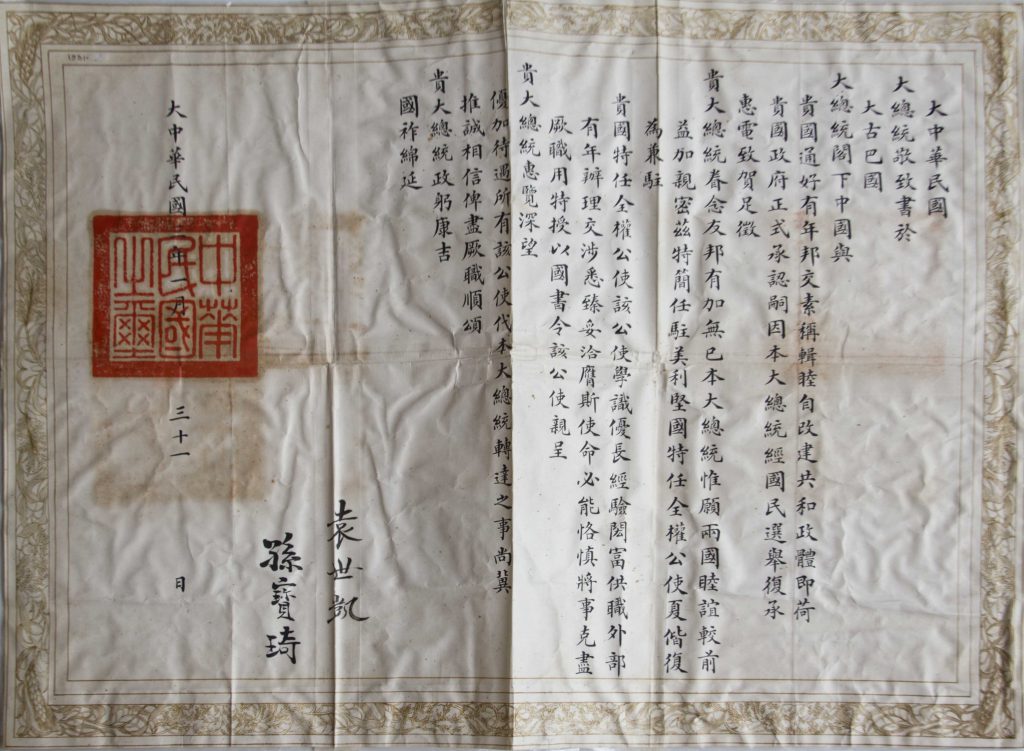 大中華民國
大總統敬致書於
大古巴國
大總統閣下中國與
貴國通好有年邦交素稱輯睦自改建共和政體即荷
貴國政府正式承認嗣因本大總統經國民選舉復承
惠電致賀足徵
貴大總統眷念友邦有加無已本大總統惟願兩國睦誼較前
益加親密茲特簡任駐美利堅國特任全權公使夏偕復
為兼駐
貴國特任全權公使該公使學識優長經驗閎富供職外部
有年辦理交涉悉臻妥洽膺斯使命必能恪慎將事克盡
厥職用特授以國書令該公使親呈
貴大總統惠覽深望
優加待遇所有該公使代本大總統轉達之事尚冀
推誠相信俾盡厥職順頌
貴大總統政躬康吉
國祚綿延
袁世凱
孫寶琦
大中華民國年一月三十一日
中華民國之璽